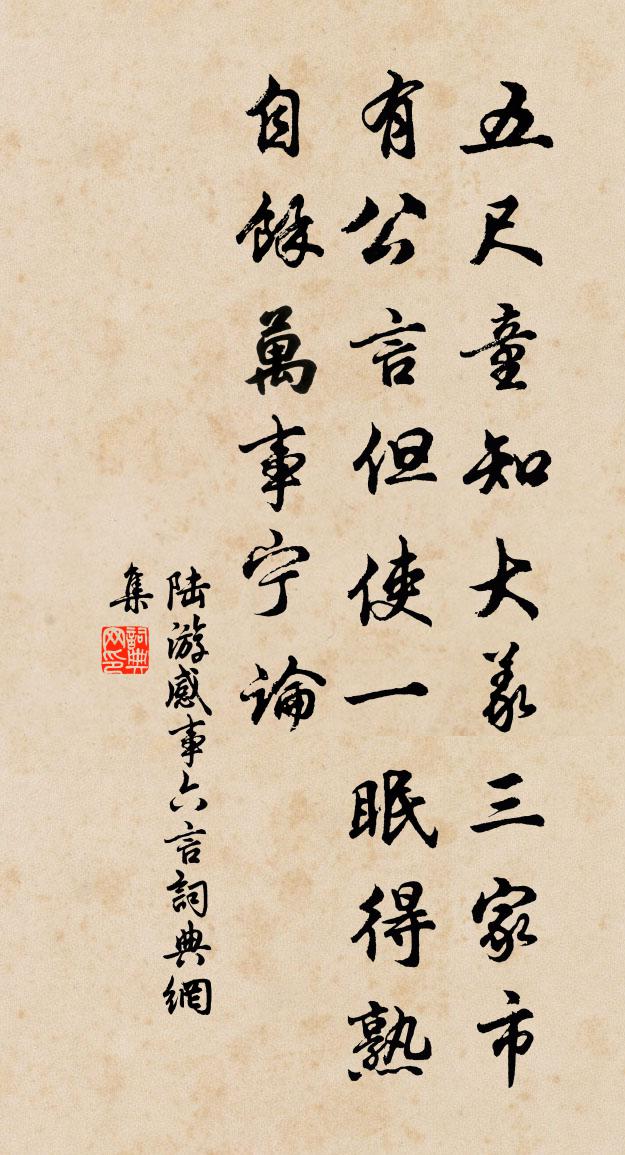 五尺童知大义三家市
有公言但使一眠得熟
自馀萬事宁論
陆游感事六言詞典網
集
詞典
网印